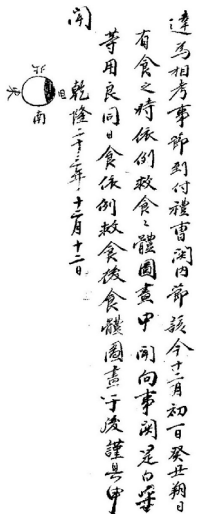 達爲相考事節到付禮曹關內節該今十二月初一日癸丑朔日
有食之時依例救食々體圖畫申聞向事關是白乎
等用良同日食依例救食後食體圖畫于後謹具申
聞
乾隆二十三年十二月十二日
北
西
東
南